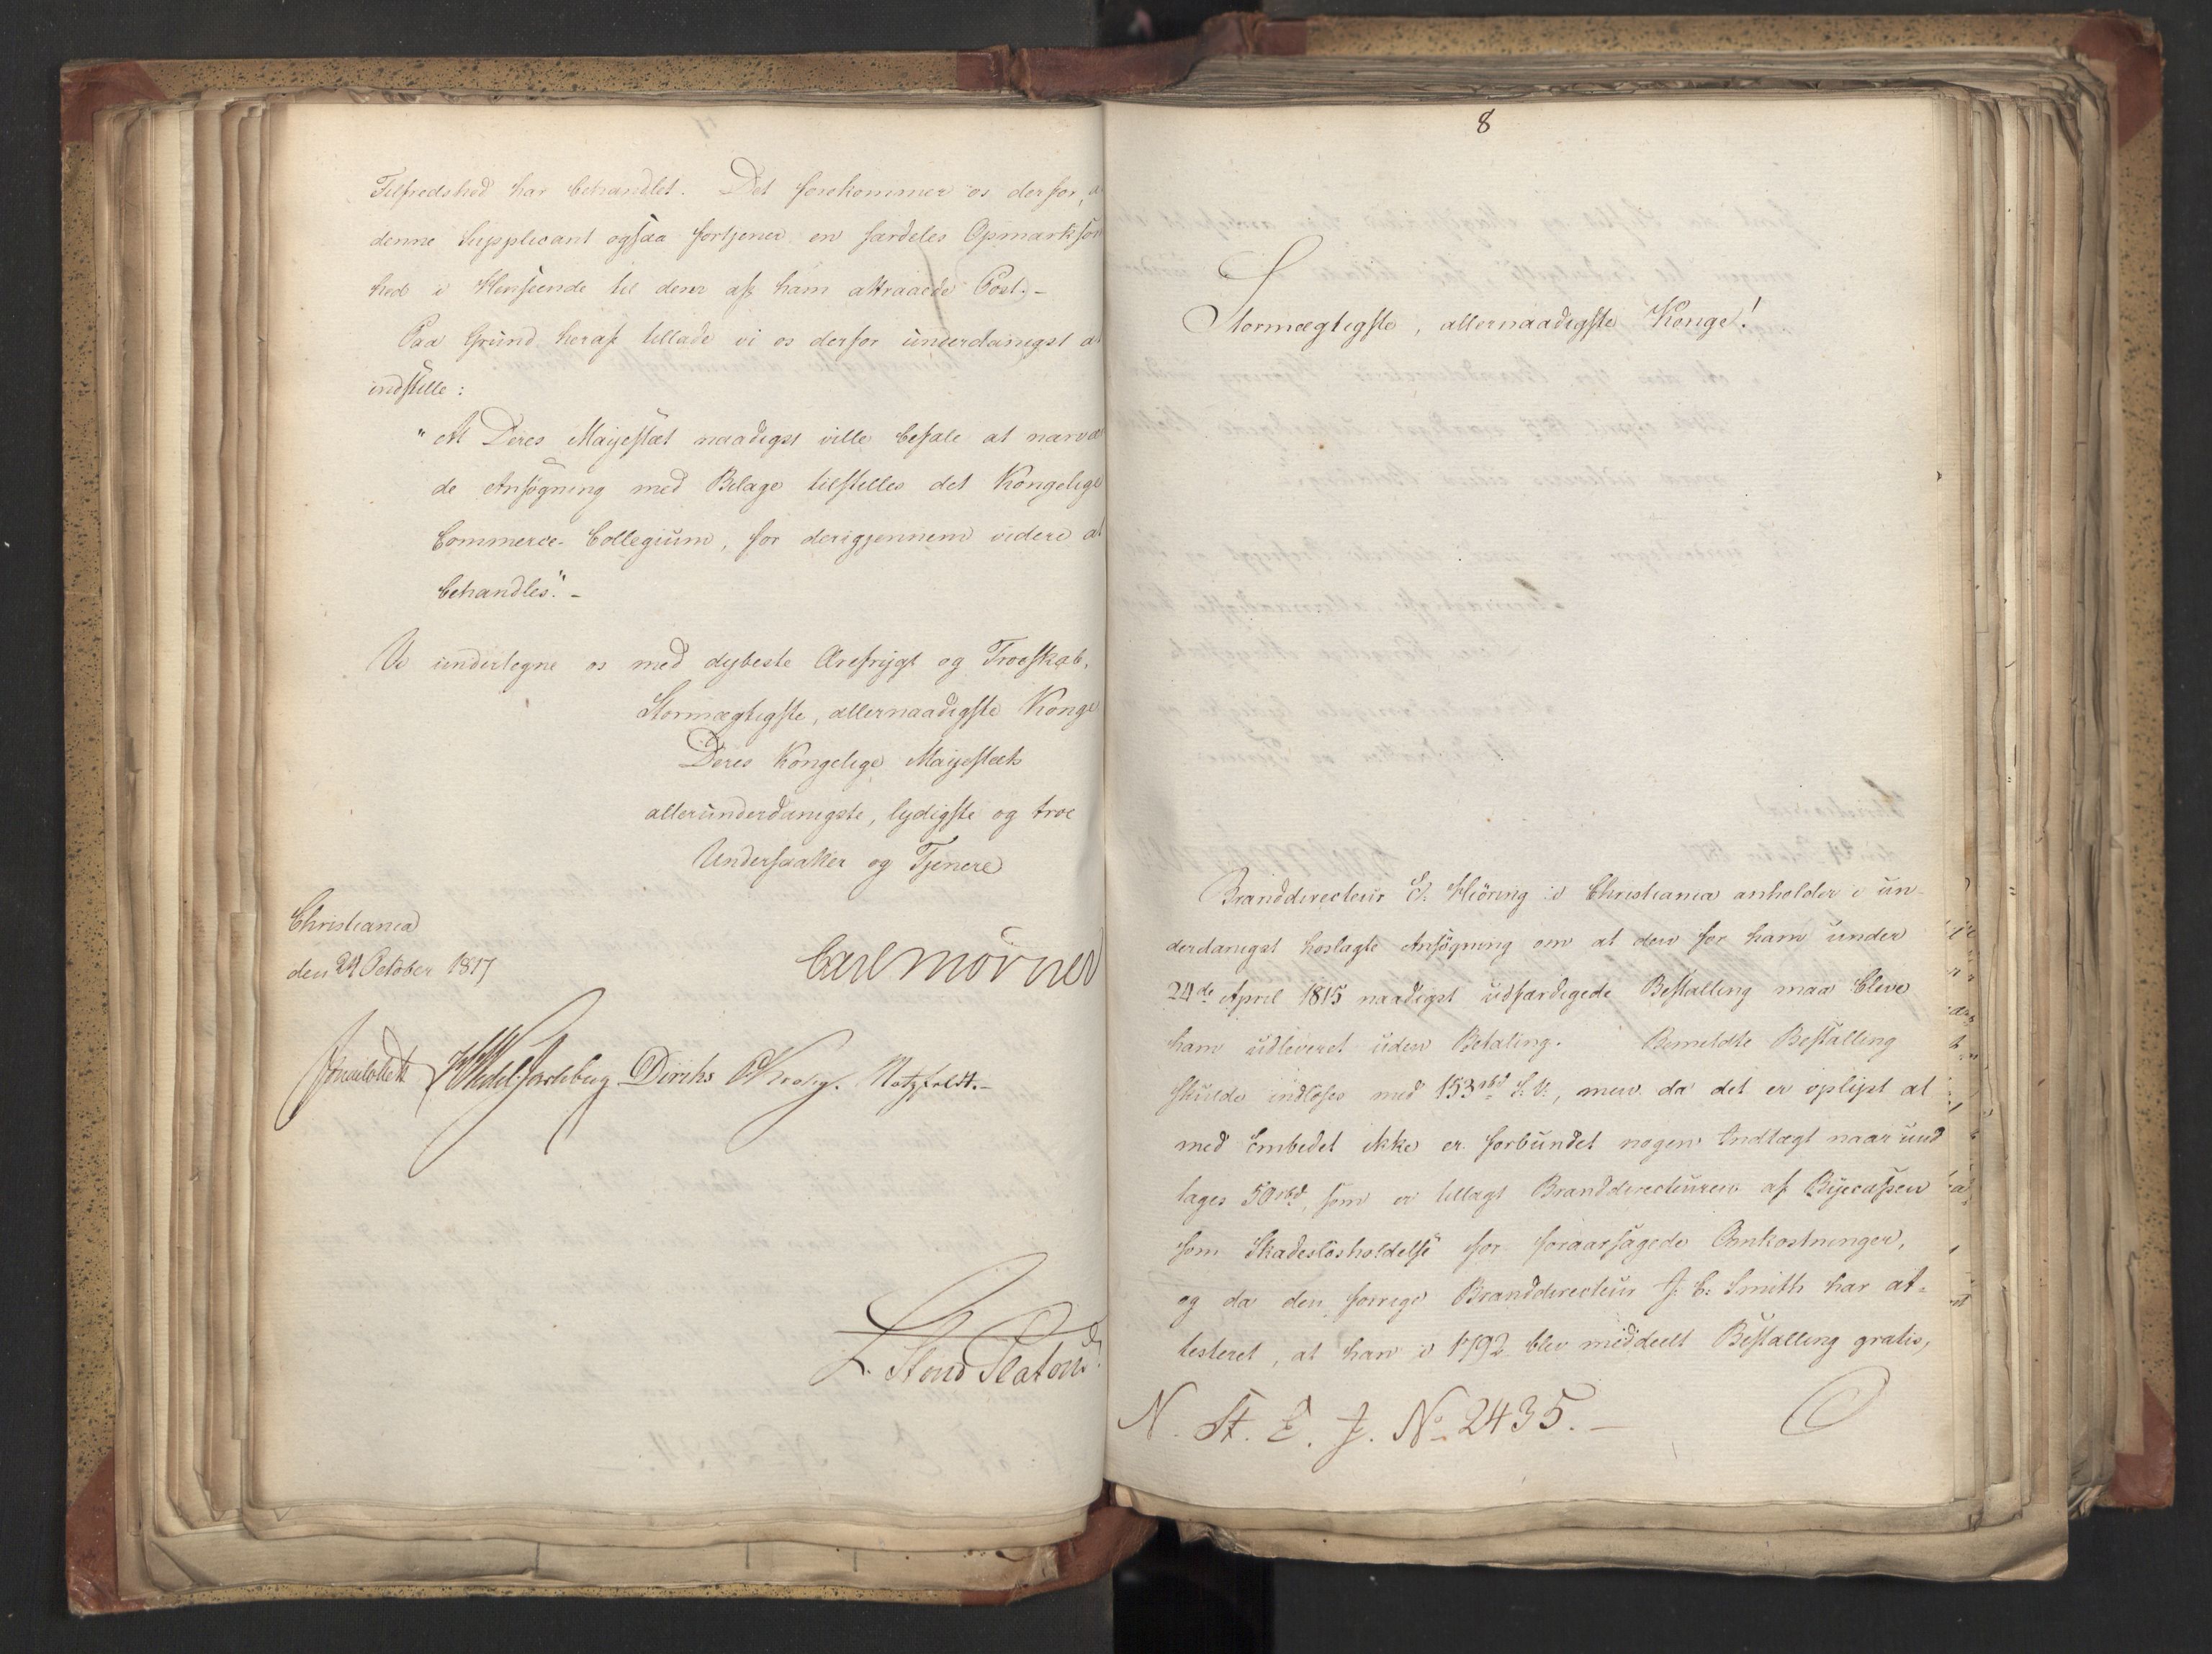 Tilfredshed har behandlet. Det forekommer os derfor, a
denne Supplicant ogsaa fortjener en særdeles Opmærksom
hed i Henseende til denr af ham attraaede Post. -
Paa Grund heraf tillade vi os derfor underdanigst at
indstille:
"At Deres Majestæt naadigst ville befale at nærvæ
de Ansøgning med Bilage tilstilles det Kongelige
Commerce-Collegium, for derigjennem videre at
behandles". -
Vi undertegne os med dybeste Ærefrygt og Troeskab,
Stormægtigste, allernaadigste Konge
Deres Kongelige Majestæts
allerunderdanigste, lydigste og troe
Undersaatter og Tjenere
Christiania
den 24 October 1817
Carl Mörner
Sommerfeldt HWedel Jarlsberg Diriks CKrohg. Motzfeldt. -
L. Stoud Platou
8
Stormægtigste, allernaadigste Konge!
Branddirecteur E. Hiöring i Christiania anholder i un-
derdanigst hoslagte Ansøgning om at den for ham under
24de April 1815 naadigst udfærdigede Bestalling maa blive
ham udleveret uden Betaling. Bemeldte Bestalling
skulde indløses med 153 rbd S. V., men da det er oplyst at
med Embedet ikke er forbundet nogen Indtægt naar und
tages 50 rbd, som er tillagt Branddirecteuren af Byecassen
som Skadesløsholdelse for foraarsagede Omkostninger,
og da den forrige Branddirecteur J. C. Smith har at-
testeret, at han i 1792 blev meddeelt Bestalling gratis,
N. St. E. J. No 2435. -